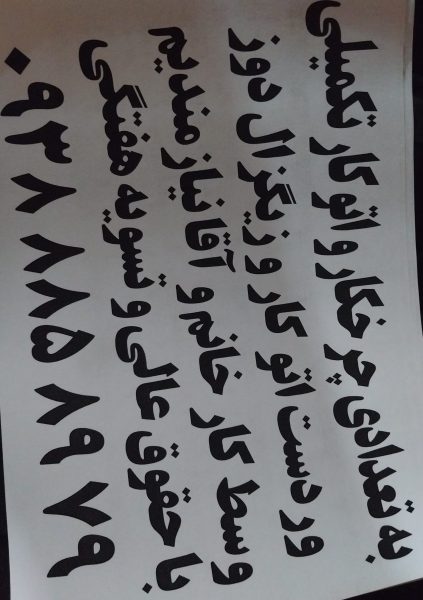 به تعدادی چرخکار و اتو کار تکمیلی
و ردست اتو کار و زیگزال دوز
وسط کار خانم و آقا نیاز مندیم
با حقوق عالی و تسویه هفتگی
۰۹۳۸ ۸۸۵ ۸۹۷۹